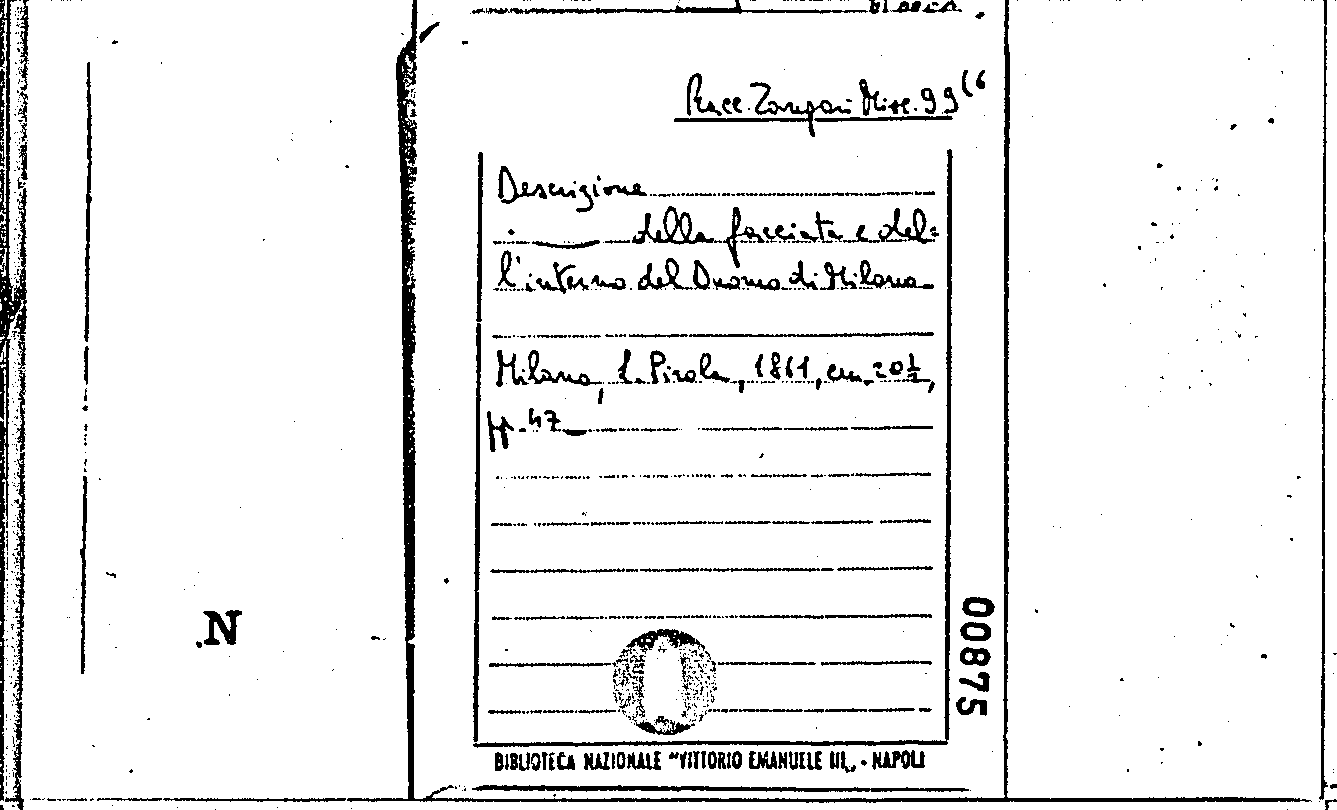 Racc. Zangari Misc. 99 (6
Descrizione
della facciata e del=
l'interno del Duomo di Milano
Milano, L. Pirola, 1861, cm. 20½,
pp. 47
N
00875
BIBLIOTECA NAZIONALE "VITTORIO EMANUELE III„ - NAPOLI